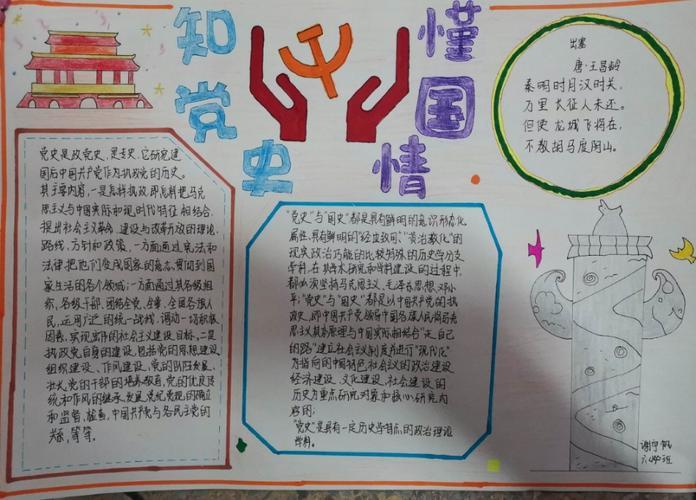 知党史
懂国情
出塞
唐·王昌龄
秦明时月汉时关,
万里长征人未还。
但使龙城飞将在,
不教胡马度阴山。
党史是政党史,是专史,它研究建
国后中国共产党作为执政党的历史。
其主要内容,一是怎样执政,即怎样把马克
思主义与中国实际和现时代特征相结合,
提出社会主义革命、建设与改革开放的理论、
路线、方针和政策,一方面通过宪法和
法律把他们变成国家的意志,贯彻到国
家生活的各个领域;一方面通过其各级组
织,各级干部,团结全党、全军、全国各族人
民,运用广泛的统一战线,调动一切积极
因素,实现出伟的社会主义建设目标。二是
执政党自身的建设,包括党的思想建设、
组织建设、作风建设,党的队伍发展
壮大,党的干部的培养教育,党的优良传
统和作风的继承、发展,党纪党规的确立
和监督、检查,中国共产党与各民主党的
关系,等等。
"党史"与"国史"都是具有鲜明的意识形态化
属性,具有鲜明的"经世致用"、"资治教化"的
现实政治功能的比较特殊的历史学分支
学科,在其学术研究和学科建设的过程中,
都必须坚持马克思主义、毛泽东思想、邓小
平;"党史"与"国史"都是以中国共产党的执
政史,即中国共产党领导中国各族人民将马克
思主义基本原理与中国实际相结合"走自己
的路"建立社会主义制度并进行"现代化"
为指向的中国特色社会主义的政治建设
经济建设、文化建设、社会建设的
历史为重点研究对象和核心研究内
容的;
"党史"是具有一定历史学特点的政治理论
学科。
六
班